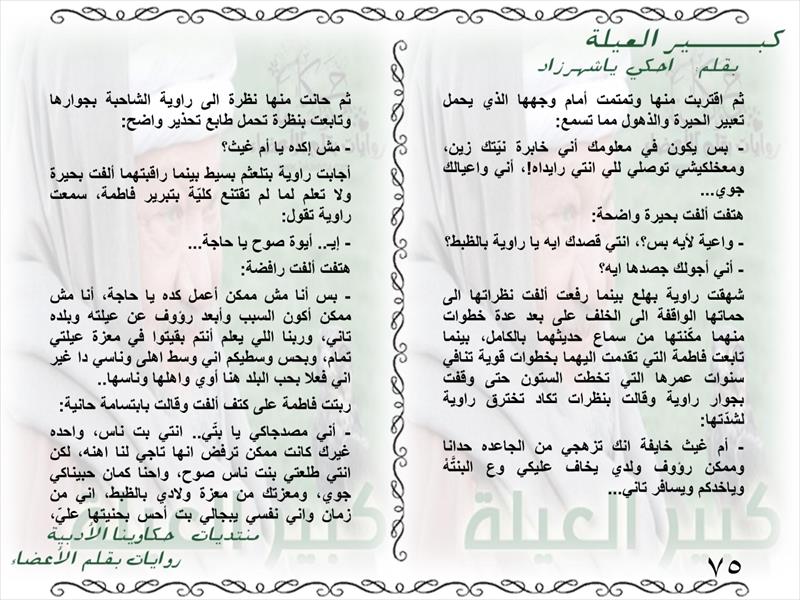 كبـــــــير العيلة
بقلم   احكي ياشهرزاد
ثم اقتربت منها وتمتمت أمام وجهها الذي يحمل
تعبير الحيرة والذهول مما تسمع:
- بس يكون في معلومك أني خابرة نيّتك زين،
ومعخلكيشي توصلي للي انتي رايداه!، أني واعيالك
جوي...
هتفت ألفت بحيرة واضحة:
- واعية لأيه بس؟، انتي قصدك ايه يا راوية بالظبط؟
- أني أجولك جصدها ايه؟
شهقت راوية بهلع بينما رفعت ألفت نظراتها الى
حماتها الواقفة الى الخلف على بعد عدة خطوات
منهما مكّنتها من سماع حديثهما بالكامل، بينما
تابعت فاطمة التي تقدمت اليهما بخطوات قوية تنافي
سنوات عمرها التي تخطت الستون حتى وقفت
بجوار راوية وقالت بنظرات تكاد تخترق راوية
لشدّتها:
- أم غيث خايفة انك تزهجي من الجاعده حدانا
وممكن رؤوف ولدي يخاف عليكي وع البنتَّهْ
وياخدكم ويسافر تاني...
ثم حانت منها نظرة الى راوية الشاحبة بجوارها
وتابعت بنظرة تحمل طابع تحذير واضح:
- مش إكده يا أم غيث؟
أجابت راوية بتلعثم بسيط بينما راقبتهما ألفت بحيرة
ولا تعلم لما لم تقتنع كليّة بتبرير فاطمة، سمعت
راوية تقول:
- إيـ.. أيوة صوح يا حاجة...
هتفت ألفت رافضة:
- بس أنا مش ممكن أعمل كده يا حاجة، أنا مش
ممكن أكون السبب وأبعد رؤوف عن عيلته وبلده
تاني، وربنا اللي يعلم أنتم بقيتوا في معزة عيلتي
تمام، وبحس وسطيكم اني وسط اهلي وناسي دا غير
اني فعلا بحب البلد هنا أوي واهلها وناسها..
ربتت فاطمة على كتف ألفت وقالت بابتسامة حانية:
- أني مصدجاكي يا بتّي.. انتي بت ناس، واحده
غيرك كانت ممكن ترفض انها تاجي لنا اهنه، لكن
انتي طلعتي بنت ناس صوح، واحنا كمان حبيناكي
جوي، ومعزتك من معزة ولادي بالظبط، اني من
زمان واني نفسي يبجالي بت أحس بحنيتها عليّ،
منتديات حكاوينا الأدبية
روايات بقلم الأعضاء
٧٥
كبير العيلة
كبير العيلة